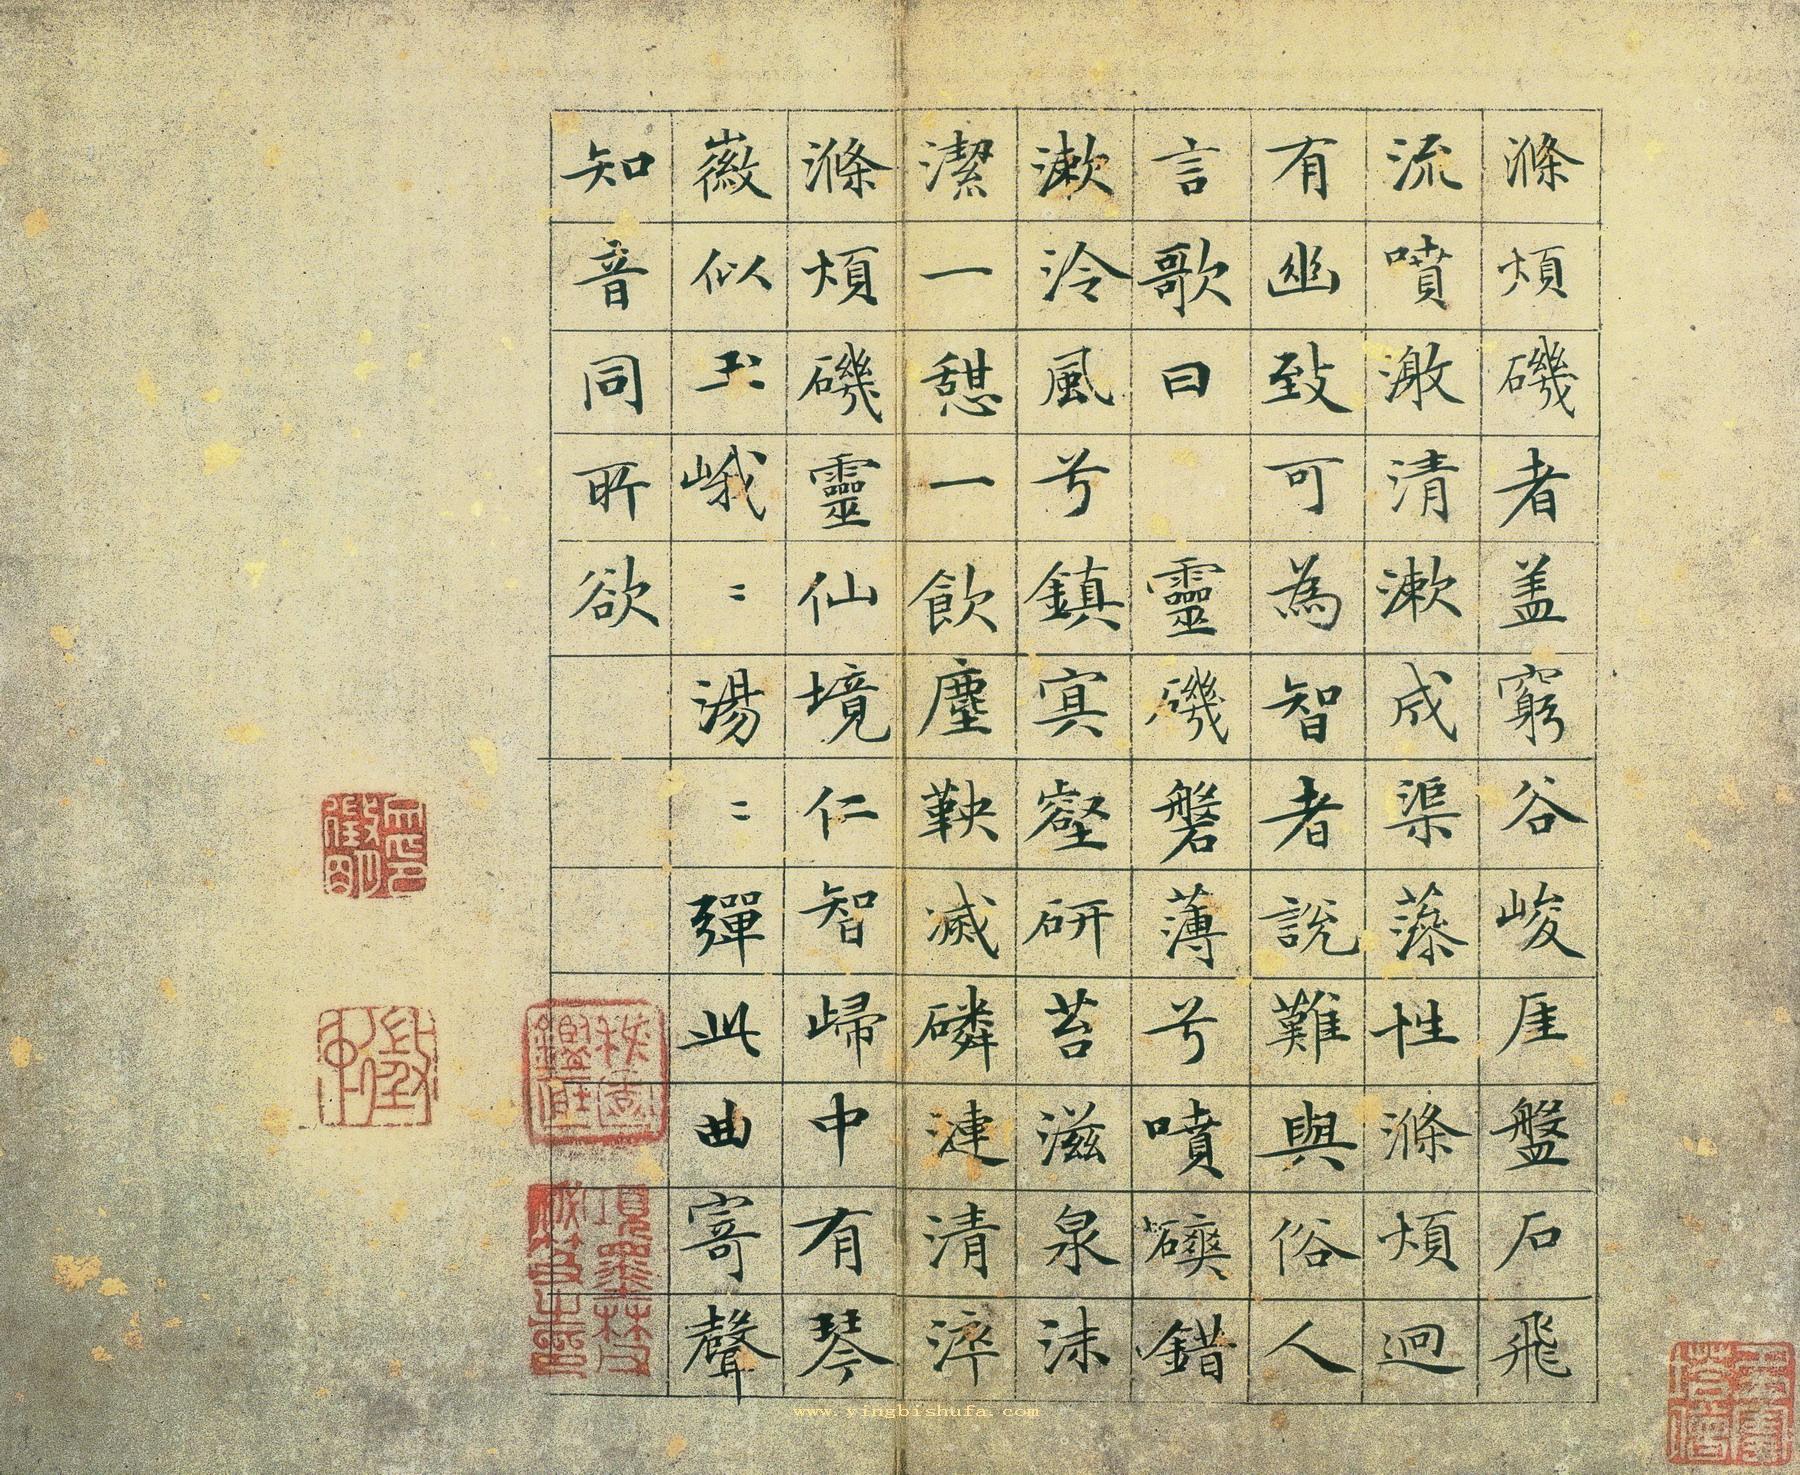 滌煩磯者盖窮谷峻厓盤石飛
流噴激清漱成渠藻性滌煩迴
有幽致可為智者說難與俗人
言歌曰 靈磯磐薄兮噴礮錯
漱泠風兮鎮冥壑研苔滋泉沫
潔一憩一飲塵鞅滅磷漣清渟
滌煩磯靈仙境仁智歸中有琴
徽似玉峨〻湯〻彈此曲寄聲
知音同所欲
www.yingbishufa.com